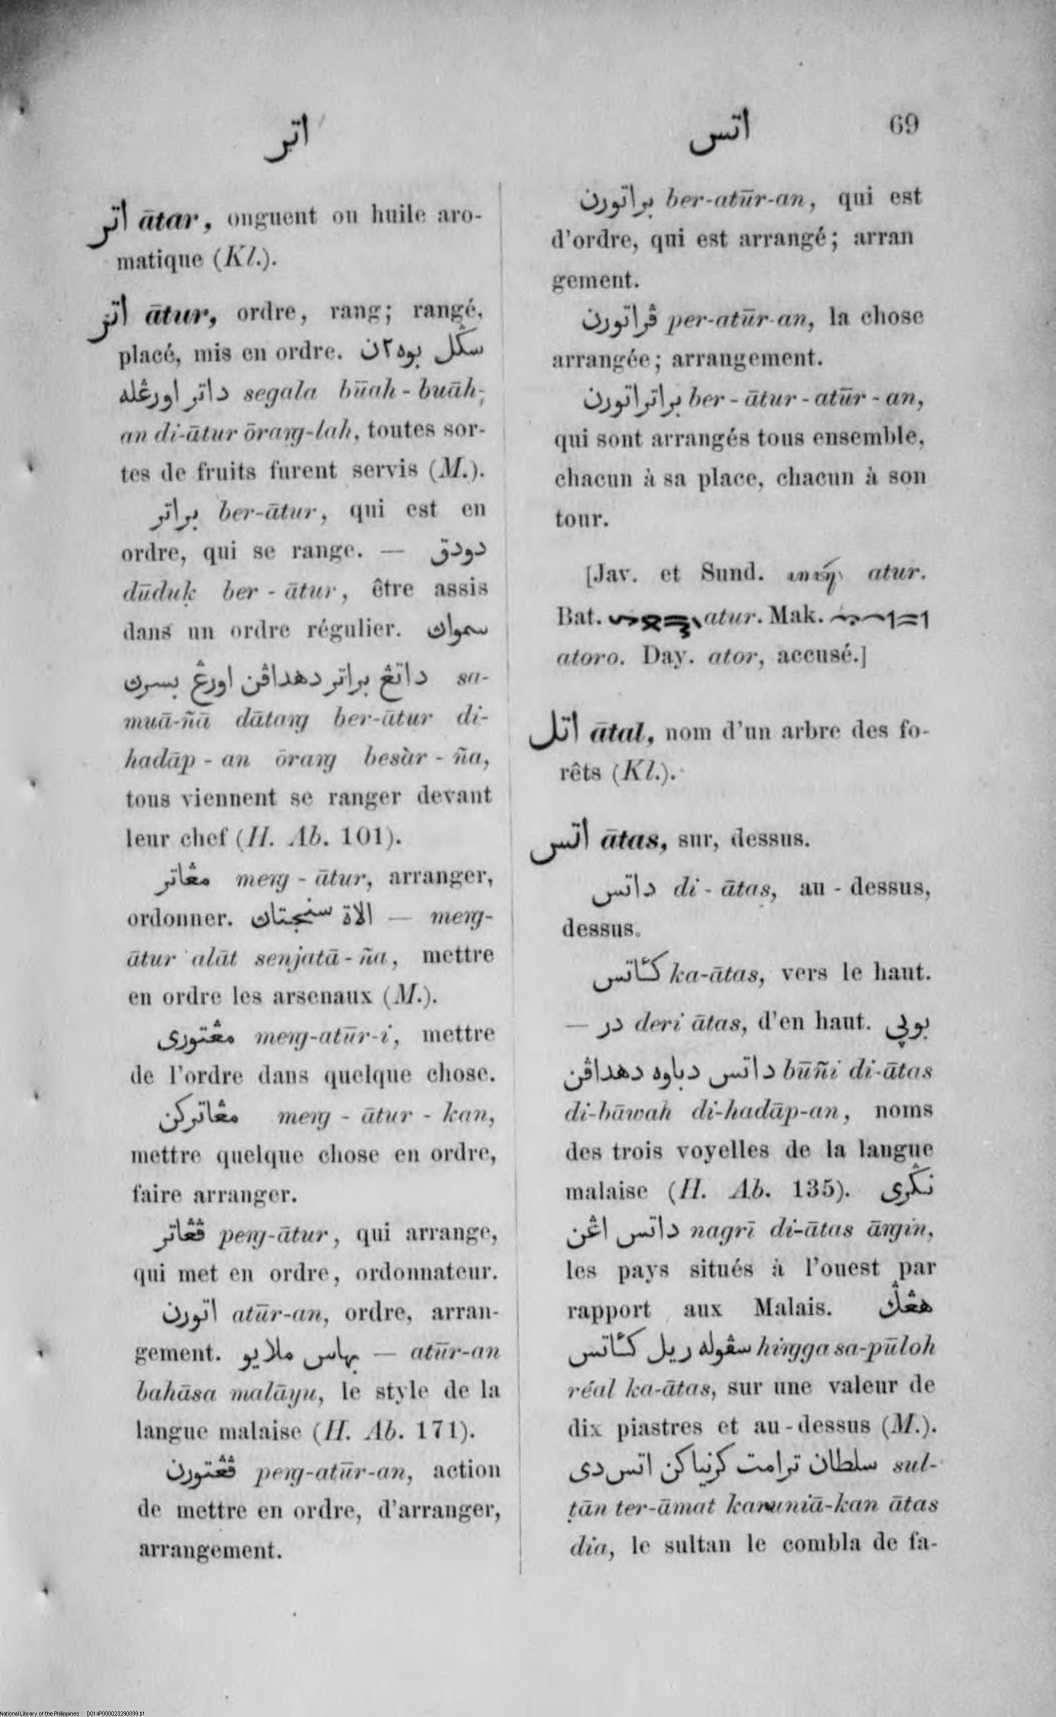 اتر
اتس 69
اتر ātar, onguent ou huile aro-
matique (Kl.).
اتر ātur, ordre, rang; rangé,
placé, mis en ordre. سݢل بوه٢ن
داتر اورڠله segala būah-buāh-
an di-ātur ōraŋ-lah, toutes sor-
tes de fruits furent servis (M.).
براتر ber-ātur, qui est en
ordre, qui se range. — دودق
dūduḳ ber-ātur, être assis
dans un ordre régulier. سمواڽ
داتڠ براتر دهداڤن اورڠ بسرڽ sa-
muā-ñā dātaŋ ber-ātur di-
hadāp-an ōraŋ besàr-ña,
tous viennent se ranger devant
leur chef (H. Ab. 101).
مڠاتر meŋ-ātur, arranger,
ordonner. الاة سنجتاڽ — meŋ-
ātur alāt senjatā-ña, mettre
en ordre les arsenaux (M.).
مڠتوري meŋ-atūr-i, mettre
de l'ordre dans quelque chose.
مڠاترکن meŋ-ātur-kan,
mettre quelque chose en ordre,
faire arranger.
ڤڠاتر peŋ-ātur, qui arrange,
qui met en ordre, ordonnateur.
اتورن atūr-an, ordre, arran-
gement. بهاس ملايو — atūr-an
bahāsa malāyu, le style de la
langue malaise (H. Ab. 171).
ڤڠتورن peŋ-atūr-an, action
de mettre en ordre, d'arranger,
arrangement.
براتورن ber-atūr-an, qui est
d'ordre, qui est arrangé; arran
gement.
ڤراتورن per-atūr-an, la chose
arrangée; arrangement.
براتراتورن ber-ātur-atūr-an,
qui sont arrangés tous ensemble,
chacun à sa place, chacun à son
tour.
[Jav. et Sund. atur.
Bat. atur. Mak.
atoro. Day. ator, accusé.]
اتل ātal, nom d'un arbre des fo-
rêts (Kl.).
اتس ātas, sur, dessus.
داتس di-ātas, au-dessus,
dessus.
کأتس ka-ātas, vers le haut.
— در deri ātas, d'en haut. بوڽي
داتس دباوه دهداڤن būñi di-ātas
di-bāwah di-hadāp-an, noms
des trois voyelles de la langue
malaise (H. Ab. 135). نݢري
داتس اڠن nagrī di-ātas āŋin,
les pays situés à l'ouest par
rapport aux Malais. هڠݢ
سڤوله ريل کأتس hiŋga sa-pūloh
réal ka-ātas, sur une valeur de
dix piastres et au-dessus (M.).
سلطان ترامت کرنياکن اتس دي sul-
ṭān ter-āmat karuniā-kan ātas
dia, le sultan le combla de fa-
National Library of the Philippines